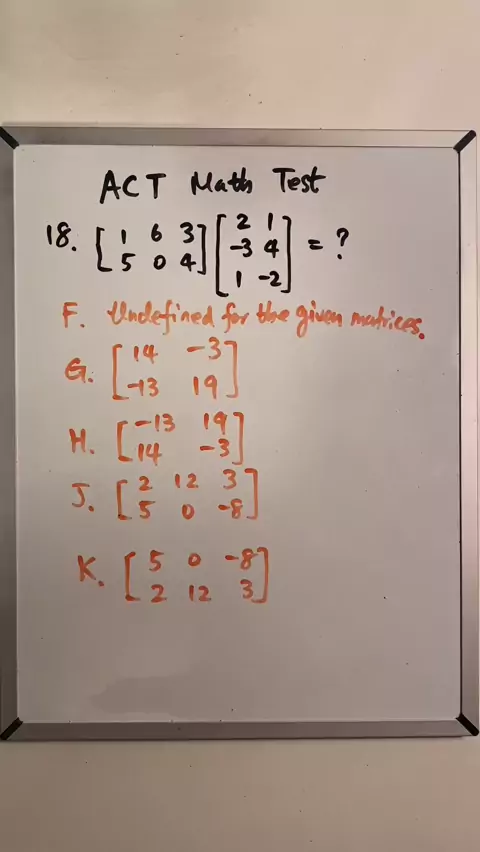 ACT Math Test
18. [1 6 3] [2 1]
[5 0 4] [-3 4] = ?
[1 -2]
F. Undefined for the given matrices.
G. [14 -3]
[-13 19]
H. [-13 19]
[14 -3]
J. [2 12 3]
[5 0 -8]
K. [5 0 -8]
[2 12 3]